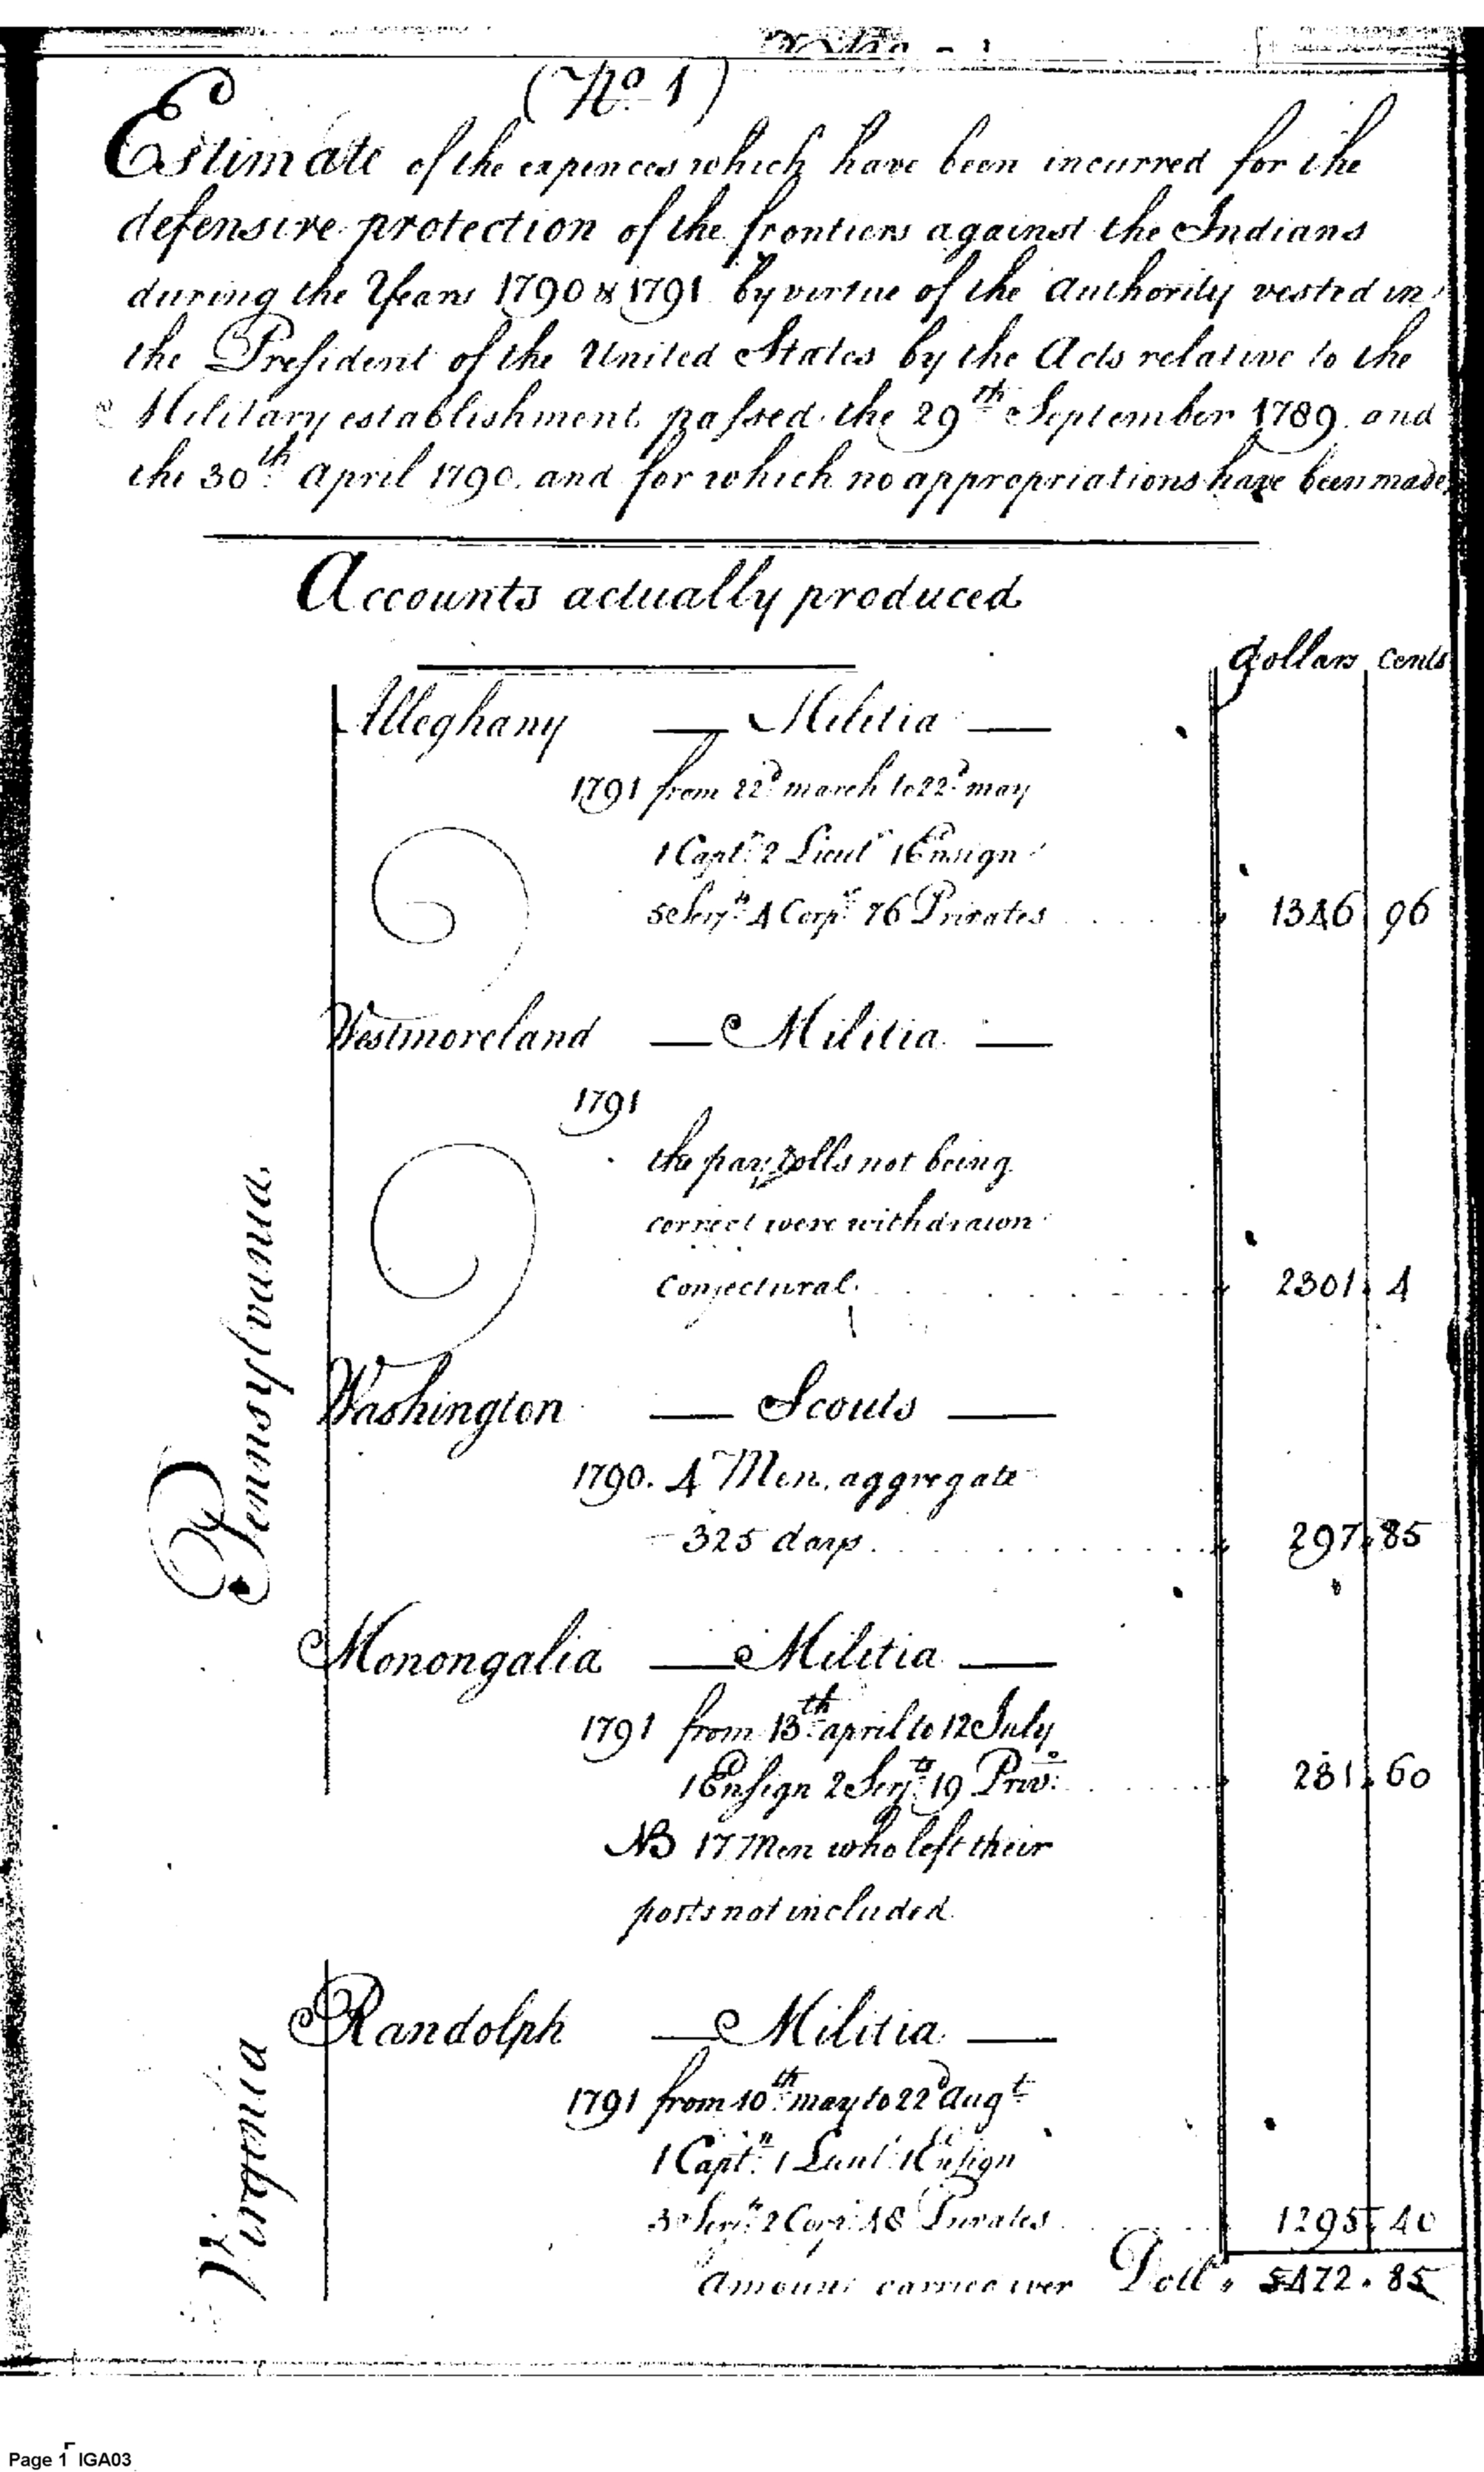 (No. 1)
Estimate of the expences which have been incurred for the
defensive protection of the frontiers against the Indians
during the Years 1790 & 1791 by virtue of the Authority vested in
the President of the United States by the Acts relative to the
Military establishment passed the 29th September 1789. and
the 30th April 1790. and for which no appropriations have been made
Accounts actually produced
dollars cents
Pennsylvania
Alleghany — Militia —
1791 from 22d march to 22d may
1 Captn 2 Lieuts 1 Ensign
5 Serjts 4 Corpls 76 Privates . . . . 1346 96
Westmoreland — Militia —
1791
the pay rolls not being
correct were withdrawn
Conjectural . . . . . . 2301. 4
Washington — Scouts —
1790. 4 Men, aggregate
325 days . . . . . . . . . . 297. 85
Monongalia — Militia —
1791 from 13th april to 12 July
1 Ensign 2 Serjts 19 Privs . . . . . 231. 60
NB 17 Men who left their
posts not included
Virginia
Randolph — Militia —
1791 from 10th may to 22d Augt
1 Captn 1 Lieut 1 Ensign
3 Serjts 2 Corpls 48 Privates . . . . 1295. 40
Amount carried over Dolls. 5472. 85
Page 1 IGA03